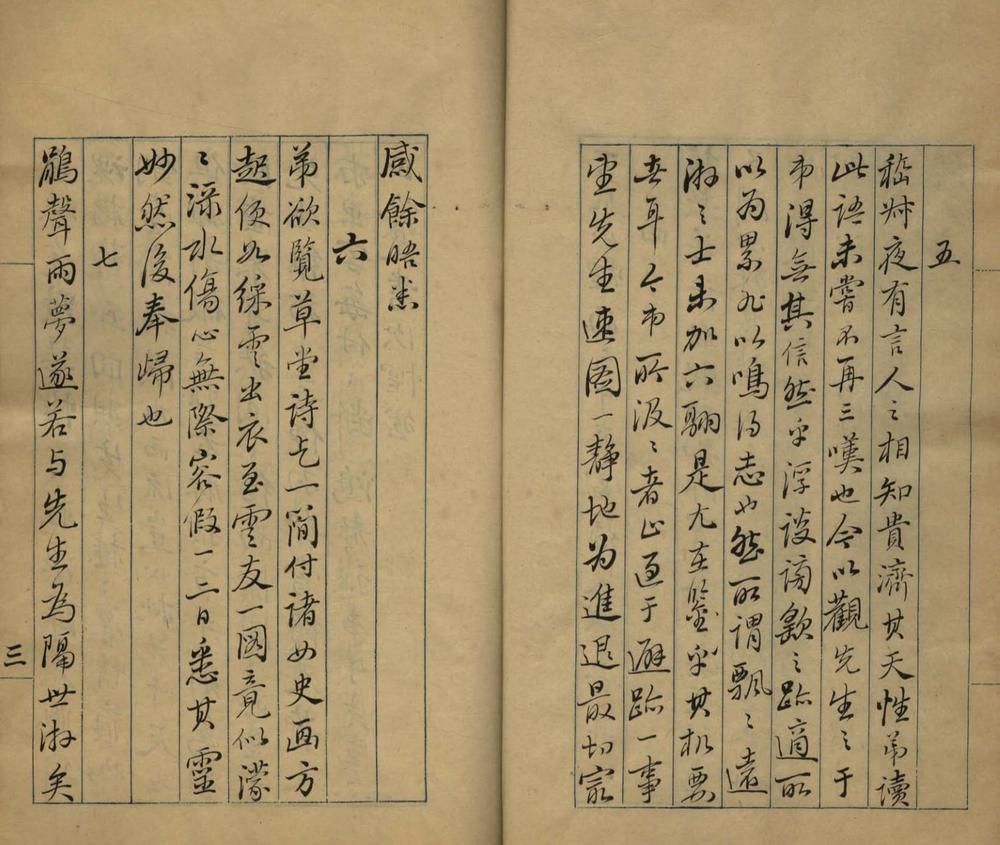 五
嵇叔夜有言人之相知貴濟其天性弟讀
此語未嘗不再三嘆也今以觀先生之于
弟得無其信然乎浮談謗歉之跡適所
以為累非以鳴得志也然所謂飄〻遠
游〻士未加六翮是尤在鑒乎其机要
者耳今弟所汲〻者止過于避跡一事
望先生速圖一靜地为進退最切㝡
感餘晤悉
六
弟欲覽草堂詩乞一簡付諸女史画方
起便如綵雲出衣至雲友一圖竟似濛
〻淥水傷心無際容假一二日悉其靈
妙然後奉歸也
七
鵑聲雨夢遂若与先生為隔世游矣
三